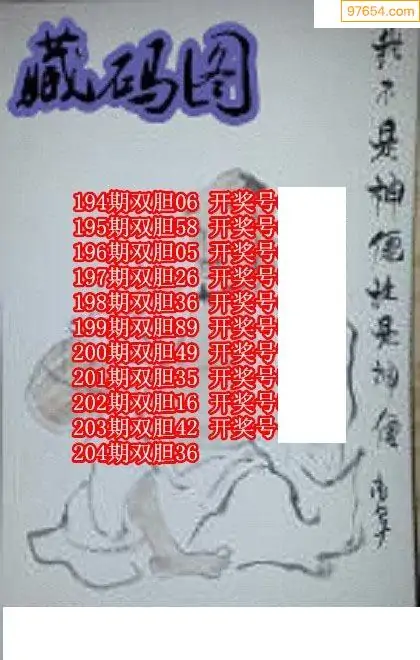 97654.com
藏码图
194期双胆06 开奖号
195期双胆58 开奖号
196期双胆05 开奖号
197期双胆26 开奖号
198期双胆36 开奖号
199期双胆89 开奖号
200期双胆49 开奖号
201期双胆35 开奖号
202期双胆16 开奖号
203期双胆42 开奖号
204期双胆36
不是神仙
是神仙